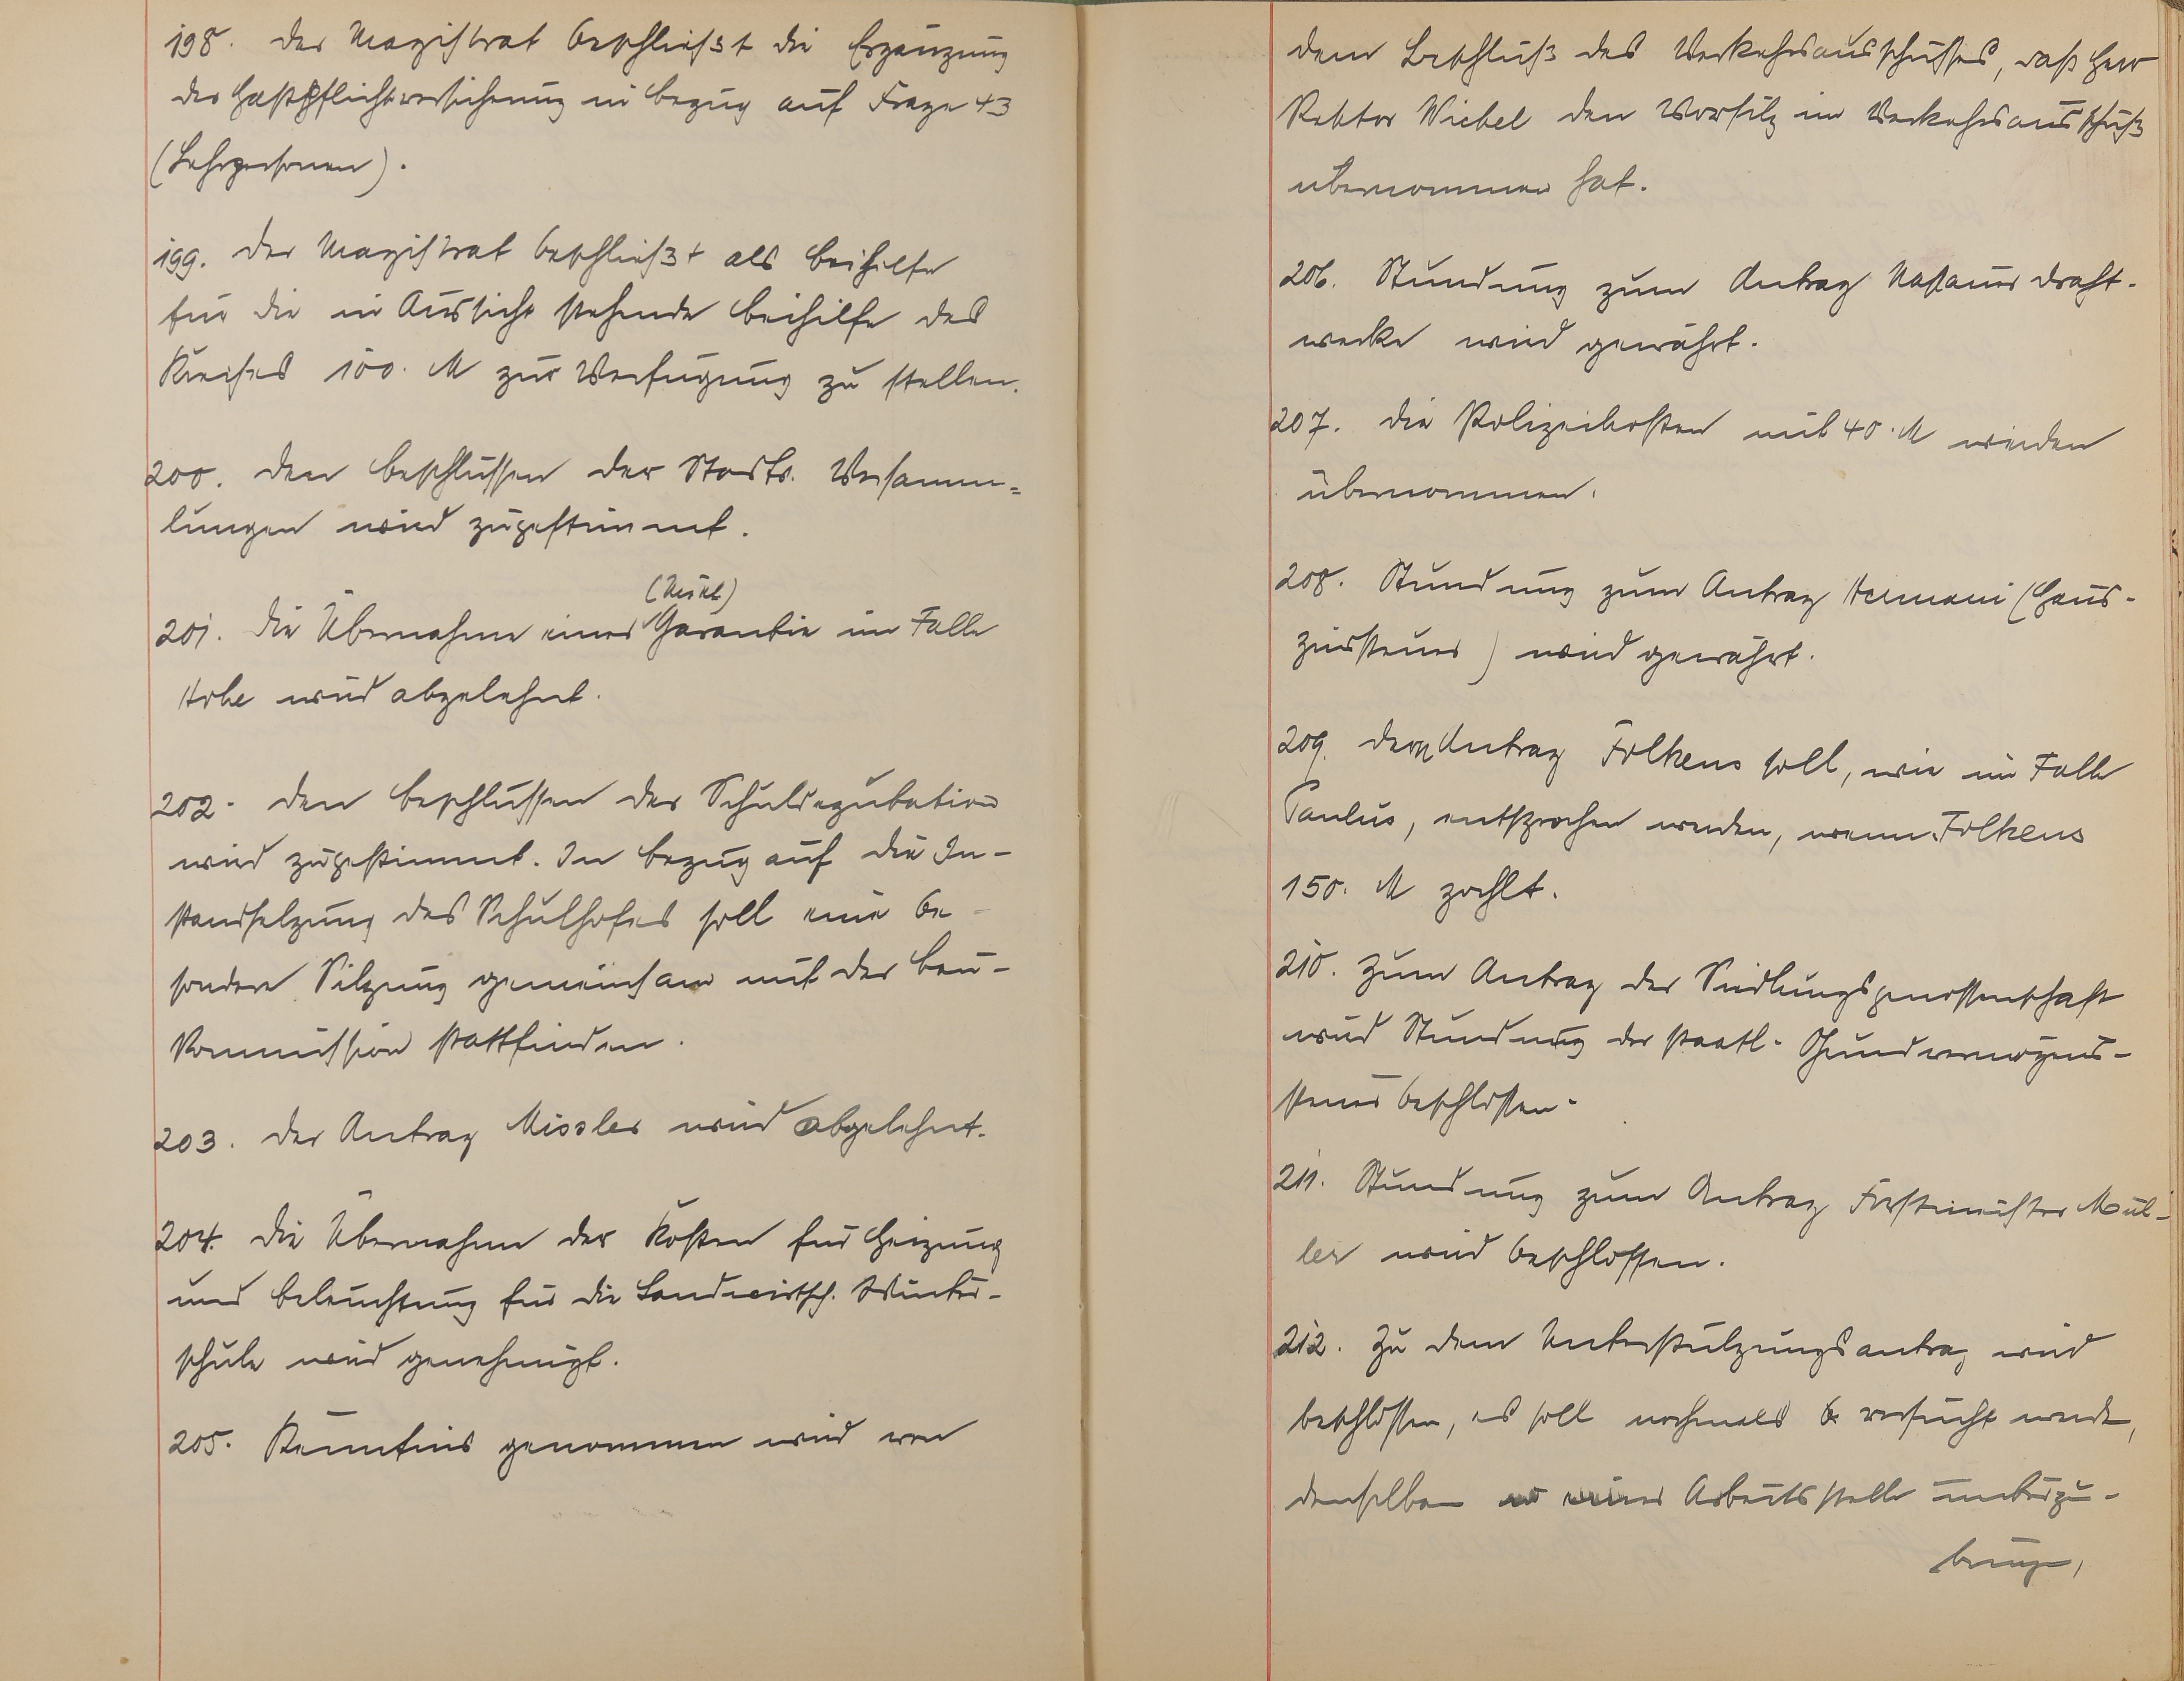 198. Der Magistrat beschließt die Ergänzung
der Haftpflichtversicherung in bezug auf Frage 43
(Lehrpersonen).
199. Der Magistrat beschließt als Beihilfe
für die in Aussicht stehende Beihilfe des
Kreises 100. M zur Verfügung zu stellen.
200. Den Beschlüssen der Stadtv. Versamm=
lungen wird zugestimmt.
201. Die Übernahme einer Garantie im Falle
wird abgelehnt.
202. Den Beschlüssen der Schuldeputation
wird zugestimmt. In bezug auf die In-
standsetzung des Schulhofes soll eine be-
sondere Sitzung gemeinsam mit der Bau-
Kommission stattfinden.
203. Der Antrag Missler wird abgelehnt.
204. Die Übernahme der Kosten für Heizung
und Beleuchtung für die Landwirtsch. Winter-
schule wird genehmigt.
205. Kenntnis genommen wird von
dem Beschluß des Verkehrsausschusses, daß Herr
Rektor Wiebel den Vorsitz im Verkehrsausschuß
übernommen hat.
206. Stundung zum Antrag Nassauer Draht-
werke wird gewährt.
207. Die Polizeikosten mit 40. M werden
übernommen.
208. Stundung zum Antrag Hermani (Haus-
zinssteuer) wird gewährt.
209. Dem Antrag Folkens soll, wie im Falle
Paulus, entsprochen werden, wenn Folkens
150. M zahlt.
210. Zum Antrag der Siedlungsgenossenschaft
wird Stundung der staatl. Grundvermögens-
steuer beschlossen.
211. Stundung zum Antrag Forstmeister Mül-
ler wird beschlossen.
212. Zu dem Unterstützungsantrag wird
beschlossen, es soll nochmals versucht werden,
denselben einer Arbeitsstelle unterzu-
bringen,